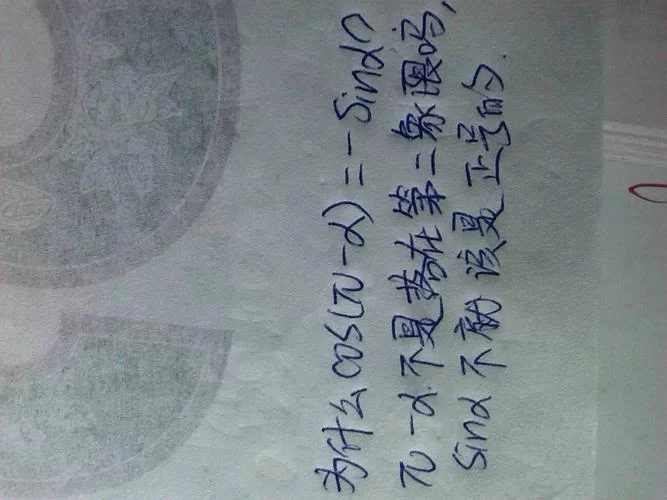 为什么cos(π-α)=-sinα?
π-α不是落在第二象限吗,
sinα不应该是正号的.